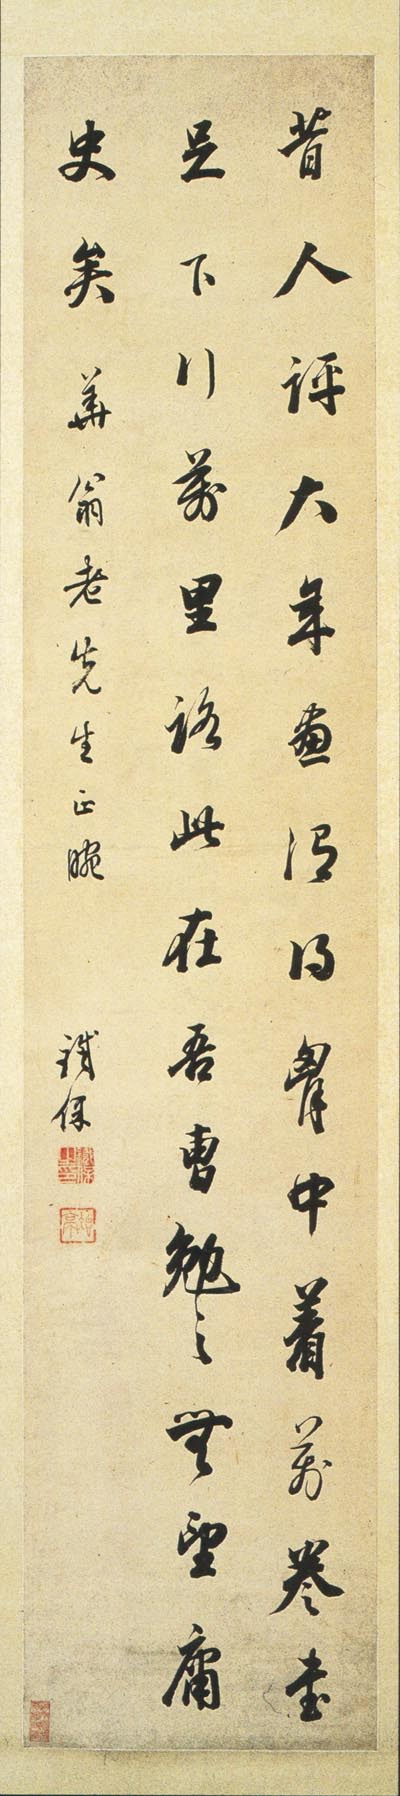 昔人評大年畫謂得胷中着萬卷書
足下行萬里路此在吾曹勉之無望庸
史矣 華翁老先生正腕
鐵保